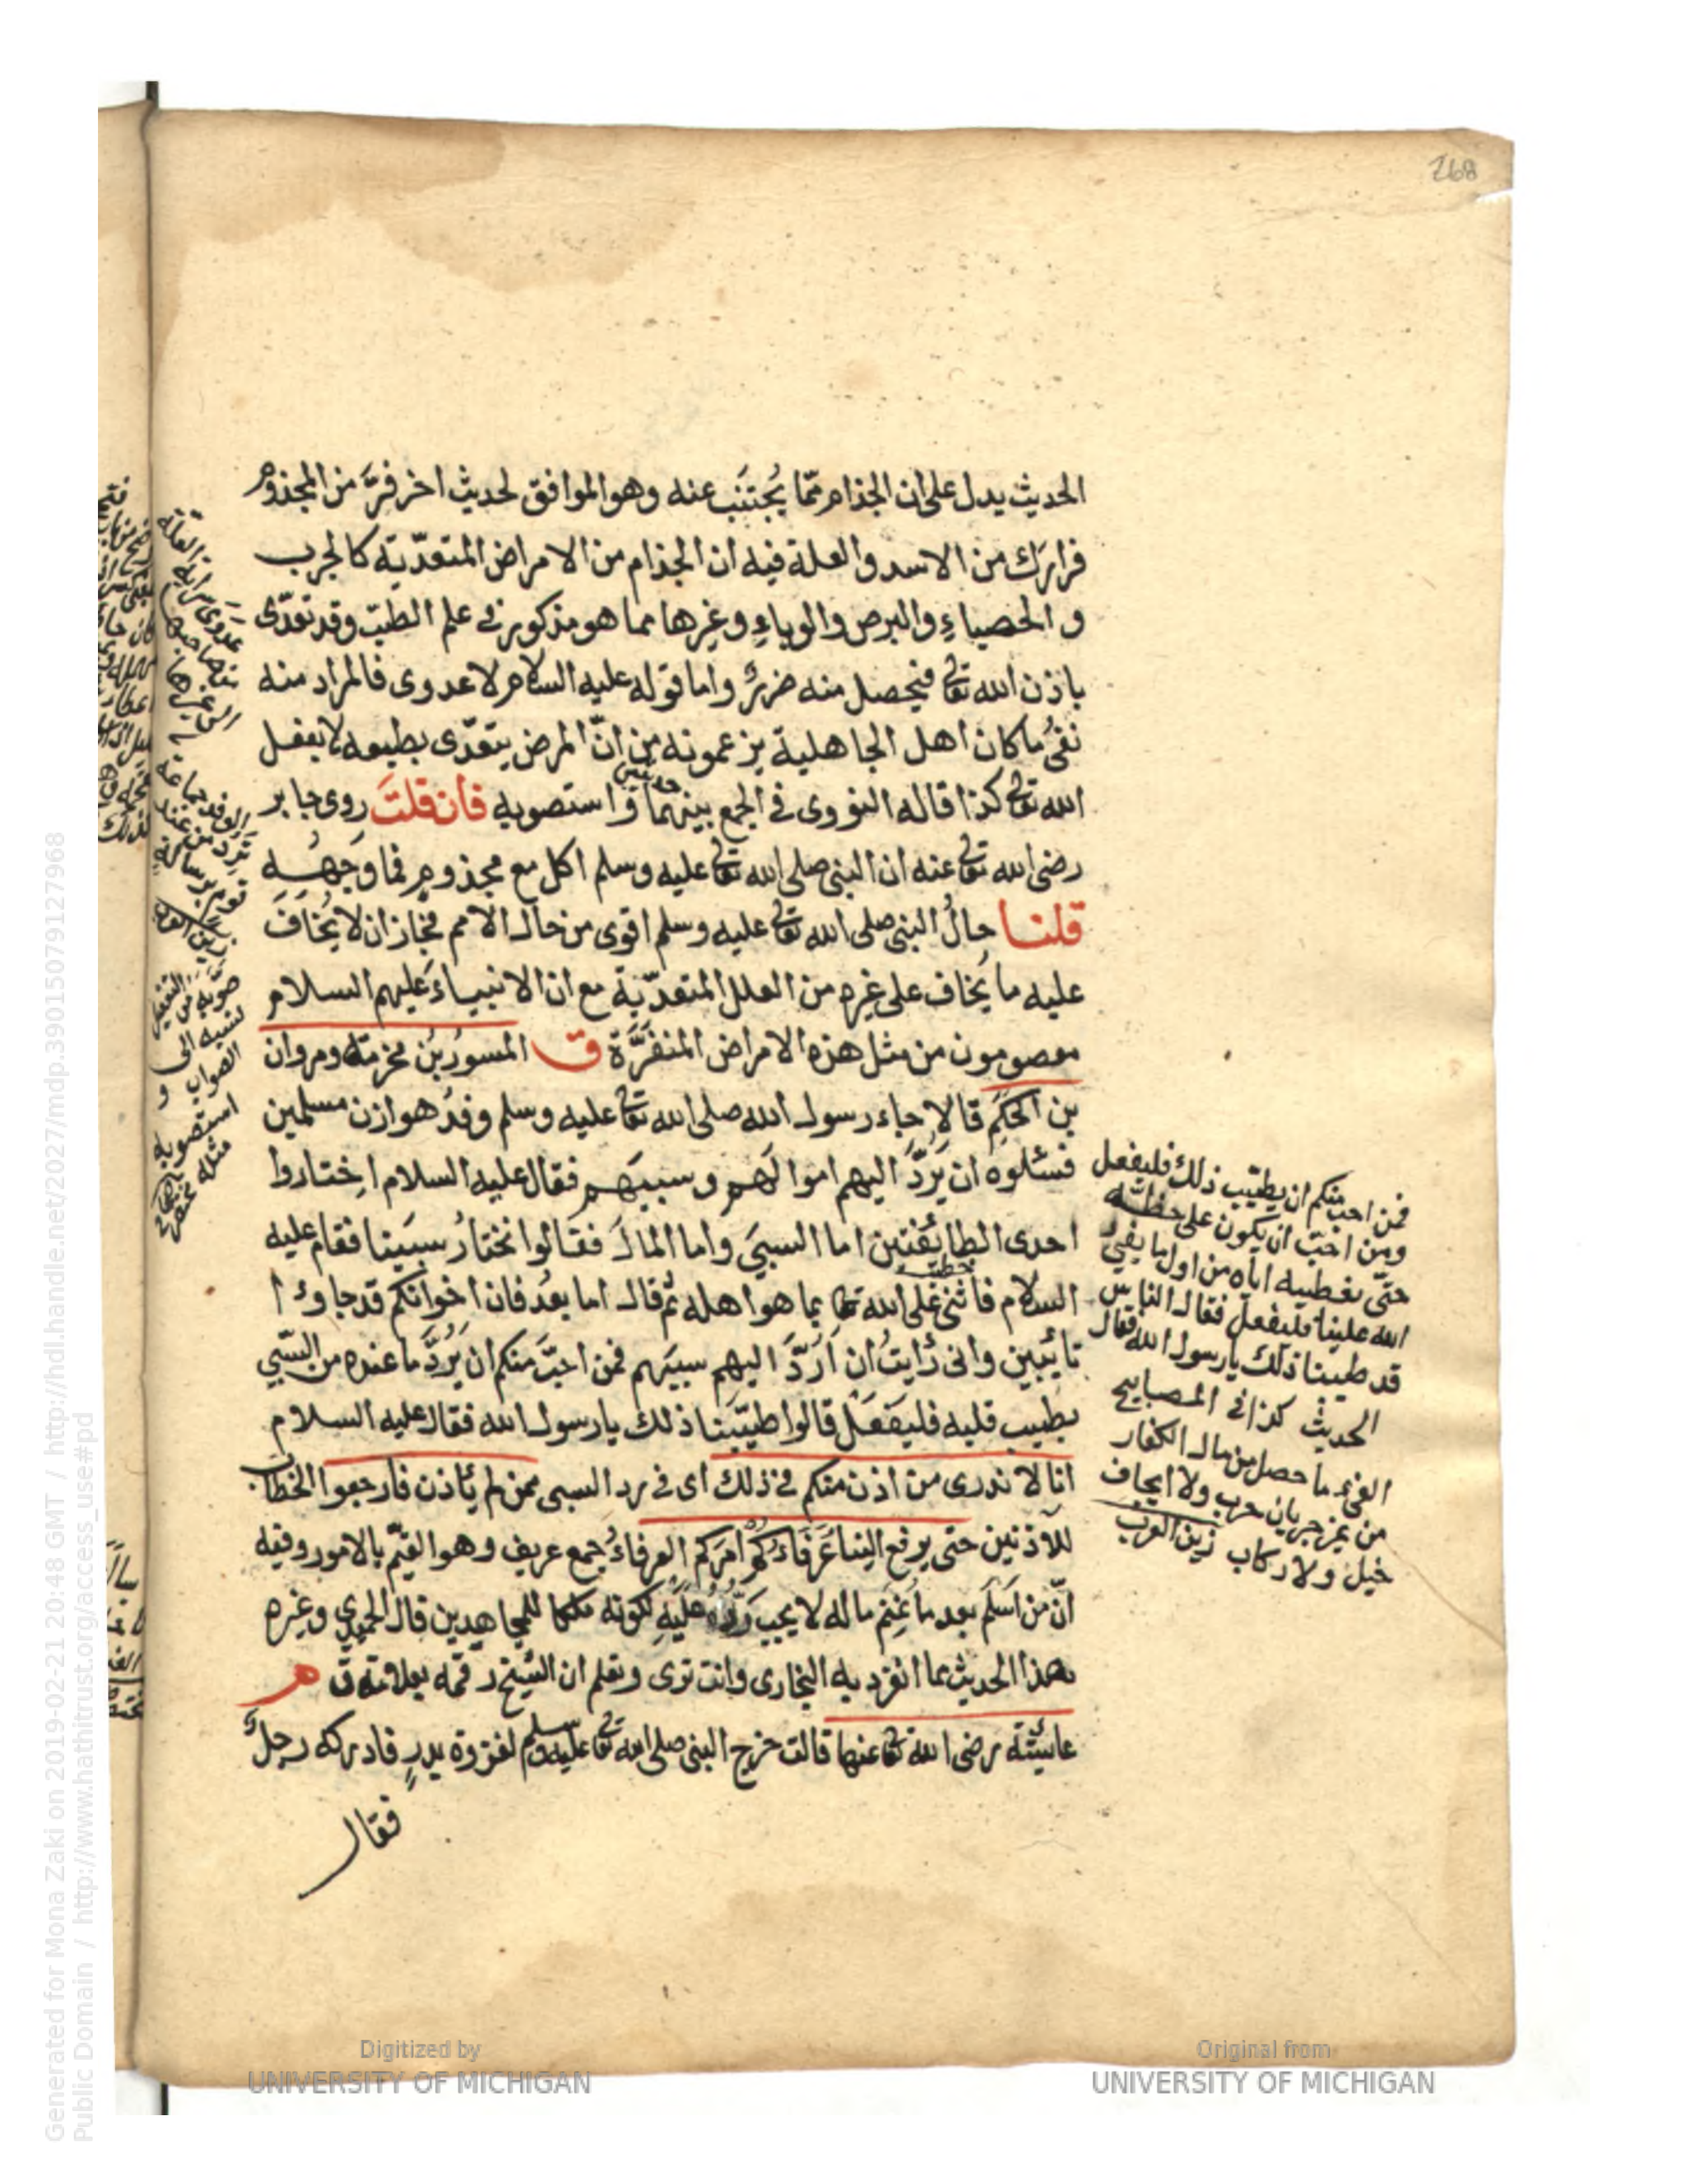 268
الحديث يدل على ان الجذام ممّا يُجتنَب عنه وهو الموافق لحديث اخر فرَّ من المجذوم
فرارَك من الاسد والعلة فيه ان الجذام من الامراض المتعدّية كالجرب
و الحصباءِ والبرص والوباءِ وغيرها مما هو مذكور في علم الطبّ وقد تعدّى
باذن الله تعالى فيحصل منه ضررٌ واما قوله عليه السلام لا عدوى فالمراد منه
نفىُ ما كان اهل الجاهلية يزعمونه من انّ المرض يتعدّى بطبعه لا بفعل
الله تعالى كذا قاله النووى في الجمع بينهما و استصوبه فان قلتَ روى جابر
حديثين
رضى الله تعالى عنه ان النبى صلى الله تعالى عليه وسلم اكل مع مجذومٍ فما وجهُه
قلنا حالُ النبى صلى الله تعالى عليه وسلم اقوى من حال الامم فجاز ان لا يُخافَ
عليه ما يُخاف على غيره من العلل المتعدّية مع ان الانبياءَ عليهم السلام
معصومون من مثل هذه الامراض المنفرَّة ق المسورُ بنُ مخرمة ومروان
بن الحَكَم قالا جاء رسول الله صلى الله تعالى عليه وسلم وفدُ هوازن مسلمين
فسئلوه ان يَرُدَّ اليهم اموالَهم وسبيَهم فقال عليه السلام اختاروا
احدى الطائفتين اما السبىَ واما المالَ فقالوا نختارُ سبيَنا فقام عليه
السلام فاثنى على الله تعالى بما هو اهله ثم قال اما بعدُ فان اخوانكم قد جاوٴا
خطب
تائبين وانى رأيتُ ان اَرُدَّ اليهم سبيَهم فمن احبَّ منكم ان يَرُدَّ ما عنده من السّبي
بطيب قلبه فليفعَل قالوا طيّبنا ذلك يا رسول الله فقال عليه السلام
انا لا ندرى من اذن منكم في ذلك اى في رد السبى ممن لم يأذن فارجعوا الخطاب
للآذنين حتى يرفع الينا عُرفاءُكم امرَكم العرفاءُ جمع عريف وهو القيّم بالامور وفيه
انّ من اسلَم بعد ما غُنِمَ ماله لا يجب رَدُّهُ عليهِ لكونه ملكا للمجاهدين قال الحميدي وغيره
هذا الحديث مما انفرد به البخارى وانت ترى وتعلم ان الشيخ رقمه بعلامة ق م
عائشة رضى الله تعالى عنها قالت خرج النبى صلى الله تعالى عليه وسلم لغزوة بدرٍ فادركه رجلٌ
فقال
فمن احب منكم ان يطيّب ذلك فليفعل
ومن احبّ ان يكون على حظّه
حتّى نعطيه اياه من اول ما يفئ
الله علينا فليفعل فقال الناس
قد طيبنا ذلك يا رسول الله فقال
الحديث كذا في المصابيح
الفئ ما حصل من مال الكفار
من غير جريان حرب ولا ايجاف
خيل ولا ركاب زين العرب
الوفد جماعة
ترد من عند
قوم برسالة
زين العرب
صوّبه من التفعيل
نسبه الى
الصواب و
استصوبه
مثله
Generated for Mona Zaki on 2019-02-21 20:48 GMT / http://hdl.handle.net/2027/mdp.39015079127968
Public Domain / http://www.hathitrust.org/access_use#pd
Digitized by
UNIVERSITY OF MICHIGAN
Original from
UNIVERSITY OF MICHIGAN